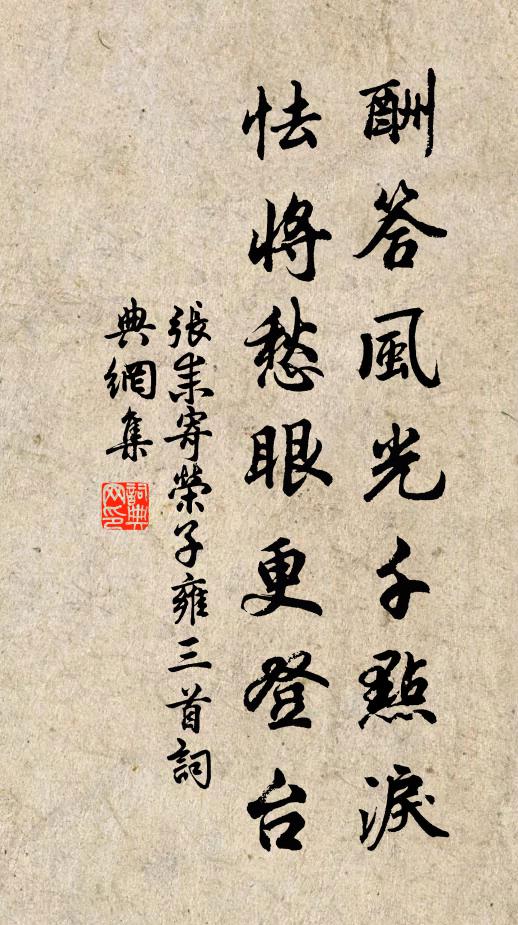 酬答風光千點淚
怯將愁眼更登台
張耒寄榮子雍三首詞
典網集
詞典
网印